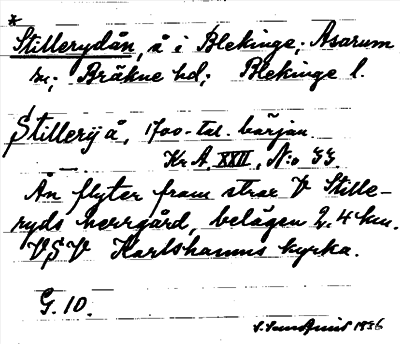 *
Stillerydån, å i Blekinge; Asarum
sn; Bräkne hd; Blekinge l.
Stillery å, 1700-tal. början
Kr.A. XXII, N:o 33.
Ån flyter fram strax V Stille-
ryds herrgård, belägen 2,4 km.
VSV Karlshamns kyrka.
G. 10.
1936